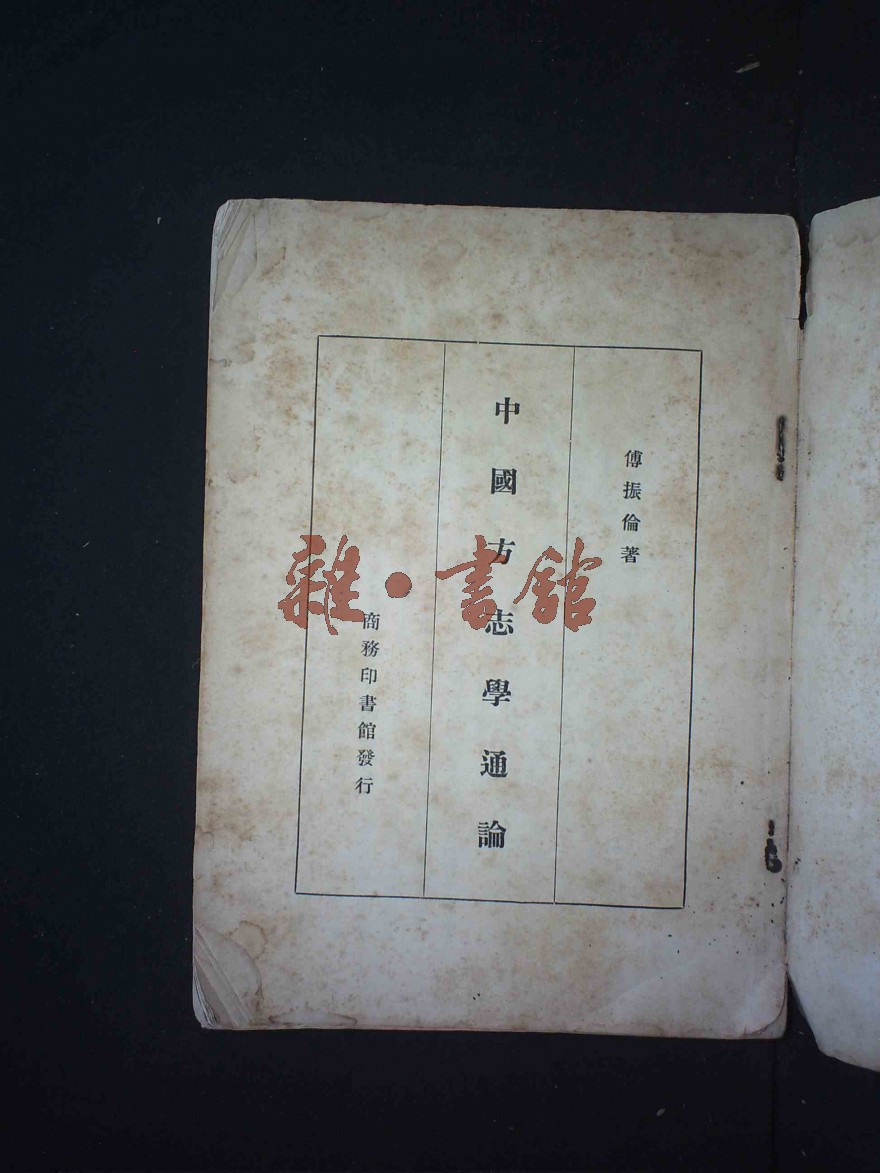 傅振倫著
中國方志學通論
商務印書館發行
雜·書館